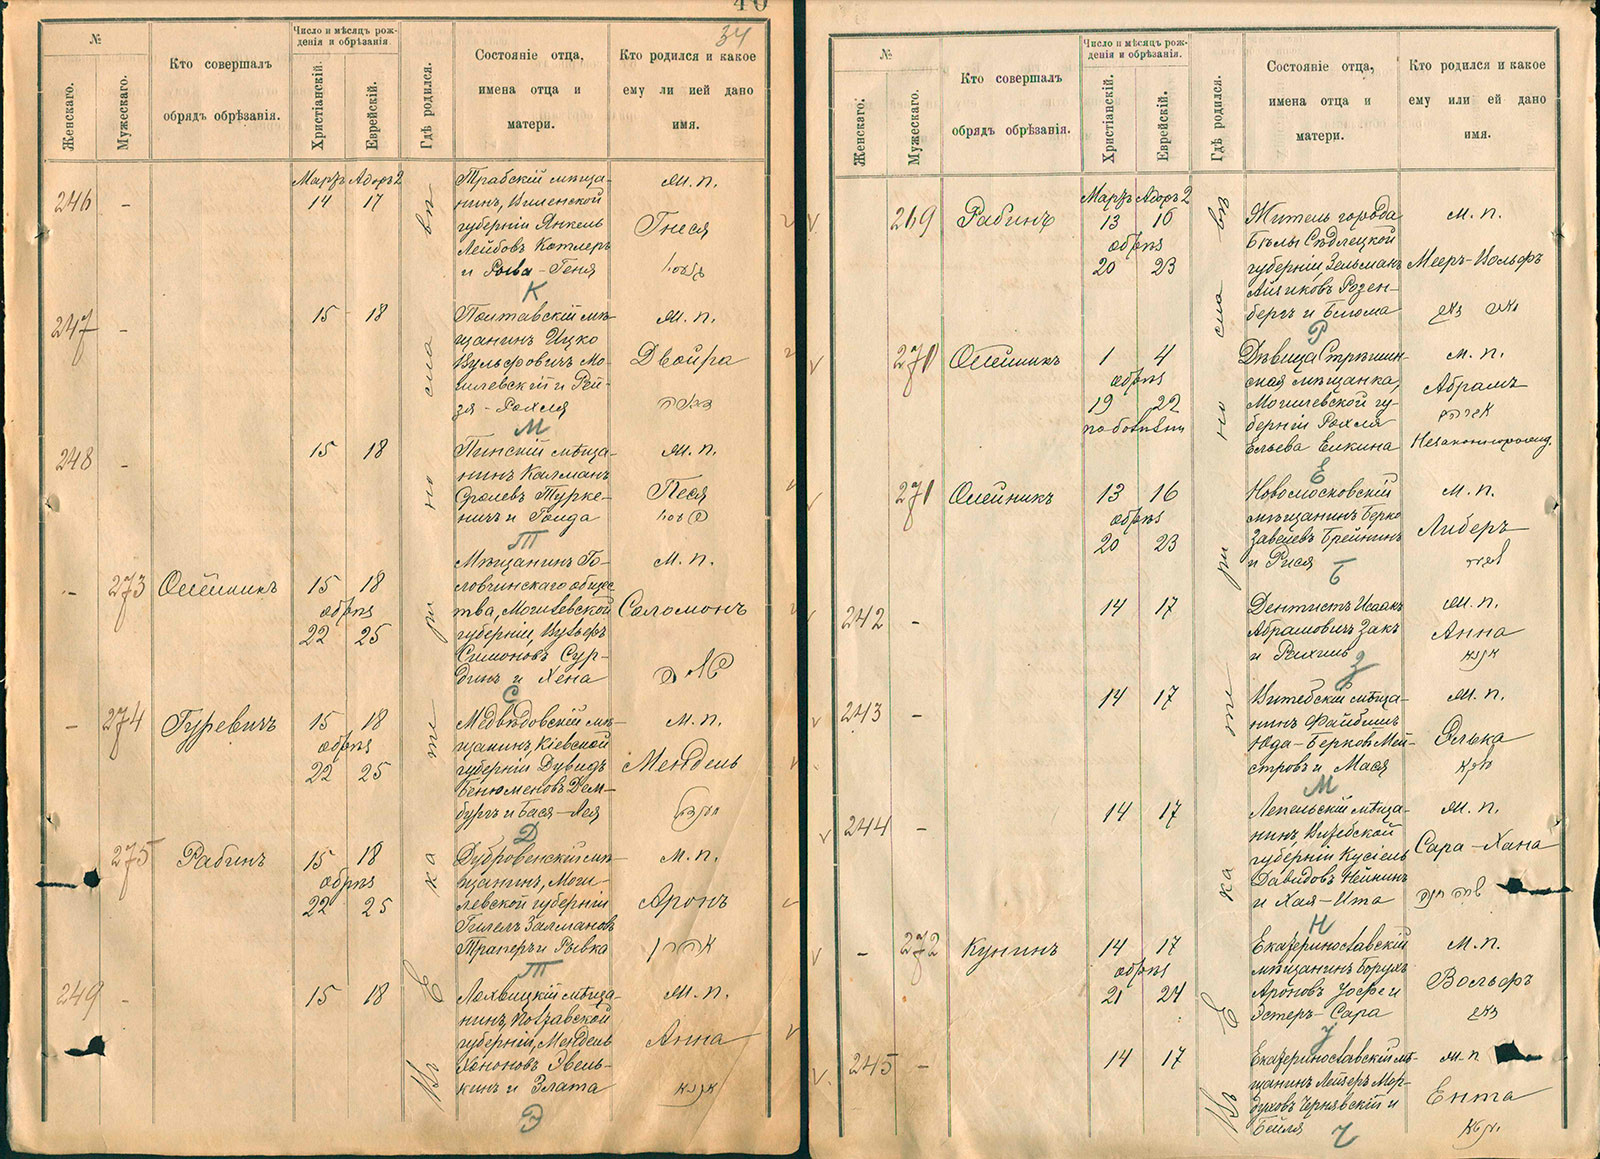 40
34
№
Женскаго.
Мужескаго.
Кто совершалъ
обрядъ обрѣзанія.
Число и мѣсяцъ рож-
денія и обрѣзанія.
Христіанскій.
Еврейскій.
Гдѣ родился.
Состояніе отца,
имена отца и
матери.
Кто родился и какое
ему ли ией дано
имя.
Въ Екатеринославѣ
246
-
Мартъ Адоръ 2
14 17
Трабскій мѣща-
нинъ, Виленской
губерніи Янкель
Лейбовъ Котлеръ
и Рива-Геня
К
М. п.
Гнеся
247
-
15 18
Полтавскій мѣ-
щанинъ Ицко
Вульфовичъ Мо-
гилевскій и Рей-
зя-Рохля
М
М. п.
Двойра
248
-
15 18
Пинскій мѣща-
нинъ Калманъ
Сролевъ Турке-
ничъ и Голда
Т
М. п.
Песя
-
273
Олейникъ
15 18
обрѣз
22 25
Мѣщанинъ Го-
ловчинскаго общес
тва, Могилевской
губерніи, Вульфъ
Симоновъ Сур-
динъ и Хена
С
М. п.
Соломонъ
-
274
Гуревичъ
15 18
обрѣз
22 25
Медвѣдовскій мѣ-
щанинъ, Кіевской
губерніи Дувидъ
Бенюменовъ Дем-
бургъ и Бася-Лея
Д
М. п.
Мендель
275
Рабинъ
15 18
обрѣз
22 25
Дубровенскій мѣ-
щанинъ, Моги-
левской губерніи
Гилелъ Залмановъ
Траперъ и Рывка
Т
М. п.
Аронъ
אהרן
249
-
15 18
Лохвицкій мѣща-
нинъ, Полтавской
губерніи, Мендель
Хононовъ Эвель-
кинъ и Злата
Э
М. п.
Анна
אננא
№
Женскаго.
Мужескаго.
Кто совершалъ
обрядъ обрѣзанія.
Число и мѣсяцъ рож-
денія и обрѣзанія.
Христіанскій.
Еврейскій.
Гдѣ родился.
Состояніе отца,
имена отца и
матери.
Кто родился и какое
ему или ей дано
имя.
Въ Екатеринославѣ
269
Рабинъ
Мартъ Адоръ 2
13 16
обрѣз
20 23
Житель города
Бѣлы Сѣдлецкой
губерніи, Зельманъ
Айзиковъ Розен-
бергъ и Блюма
Р
М. п.
Мееръ-Вольфъ
270
Олейникъ
1 4
обрѣз
19 22
по болѣзни
Дѣвица Стрѣшин-
ская мѣщанка,
Могилевской гу-
берніи Рохля
Ельева Елкина
Е
М. п.
Абрамъ
אברהם
Незаконнорожд.
271
Олейникъ
13 16
обрѣз
20 23
Новомосковскій
мѣщанинъ Берко
Завелевъ Брейнинъ
и Рися
Б
М. п.
Либеръ
242
-
14 17
Дентистъ Исаакъ
Абрамовичъ Закъ
и Рахиль
З
М. п.
Анна
אננא
243
-
14 17
Витебскій мѣща-
нинъ Файбишъ
Юда-Берковъ Мей-
стровъ и Мася
М
М. п.
Элька
244
-
14 17
Лепельскій мѣща-
нинъ, Витебской
губерніи Кусіель
Давидовъ Нейнинъ
и Хая-Ита
Н
М. п.
Сара-Хана
שרה חנה
-
272
Кунинъ
14 17
обрѣз
21 24
Екатеринославскій
мѣщанинъ Борухъ
Ароновъ
Эстеръ-Сара
У
М. п.
Вольфъ
245
-
14 17
Екатеринославскій мѣ-
щанинъ Лейзеръ Мор-
духовъ Чернявскій и
Бейля
Ч
М. п
Ента